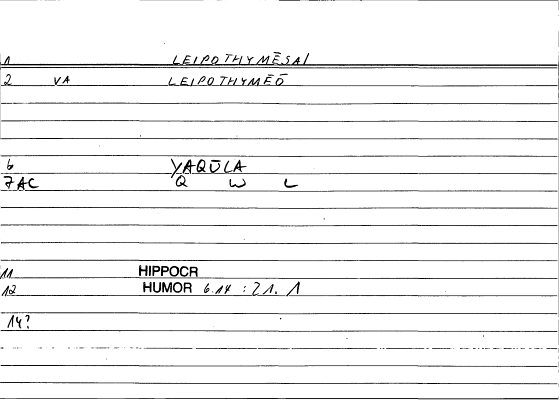 1 LEIPOTHYMĒSAI
2 VA LEIPOTHYMEŌ
6 YAQŪLA
7AC Q W L
11 HIPPOCR
12 HUMOR 6.14 : 21. 1
14?